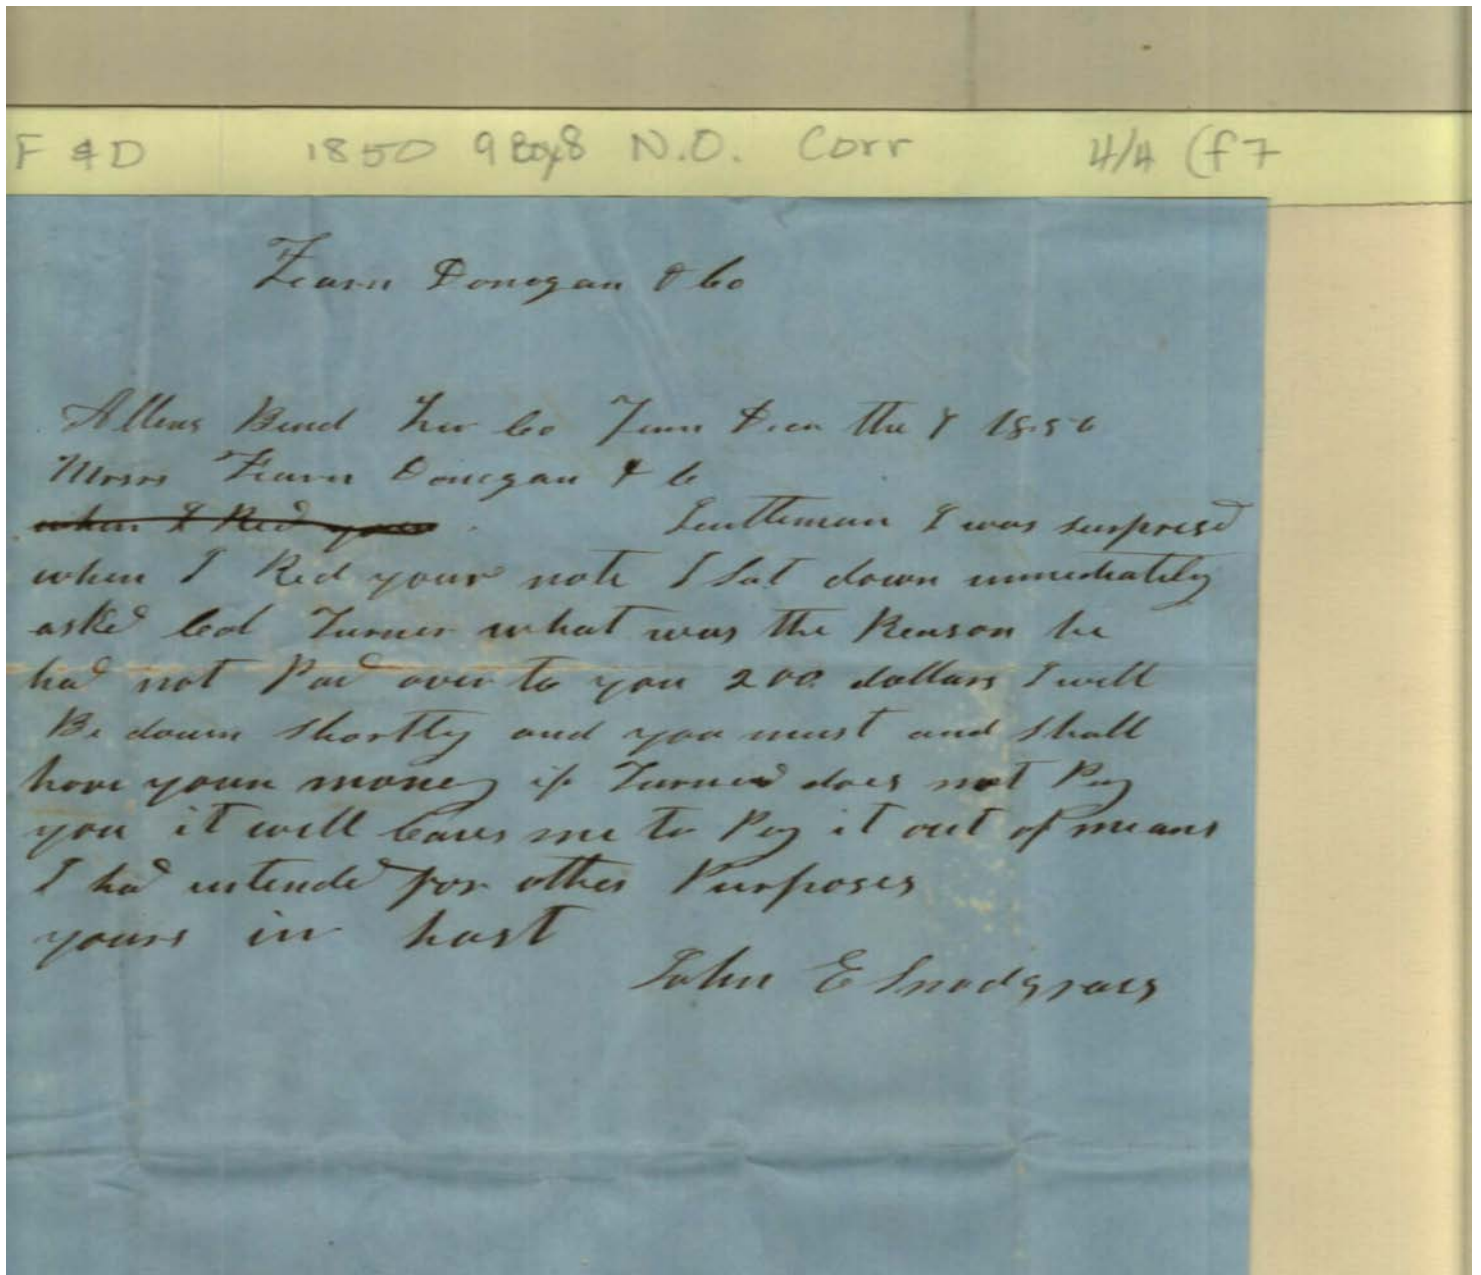 F & D 1850 9 Box 8 N.O. Corr 4/4 (f 7
Fearn Donegan & Co
Allens Bend Co Tenn the 1850
Messrs Fearn Donegan & C
when I Recd your Gentleman I was surprisd
when I Recd your note I Sat down immediately
askd Col Turner what was the Reason he
had not Pad over to you 200 dollars I will
Be down shortly and you must and shall
have youre money if Turner does not Pay
you it will Caus me to Pay it out of means
I had intended for other Purposes
yours in hast
John E Snodgrass